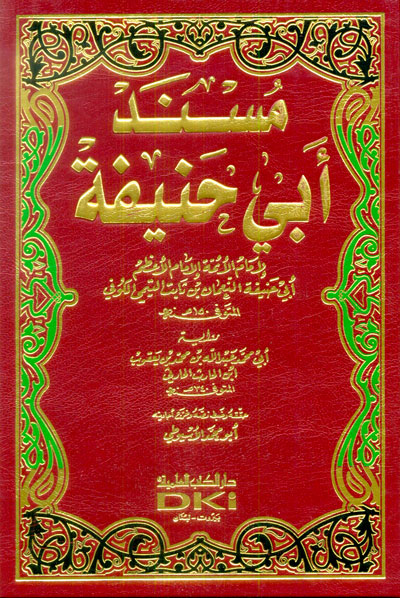 مُسْنَد
أَبِي حَنِيفَة
لإمام الأئمة الإمام الأعظم
أبي حنيفة النعمان بن ثابت التيمي الكوفي
المتوفى ١٥٠ هـ
رواية
أبي محمد عبد الله بن محمد بن يعقوب
ابن الحارث الحارثي
المتوفى ٣٤٠ هـ
حققه وضبط نصه وخرج أحاديثه
أبو محمد الأسيوطي
دار الكتب العلمية
DKi
بيروت - لبنان